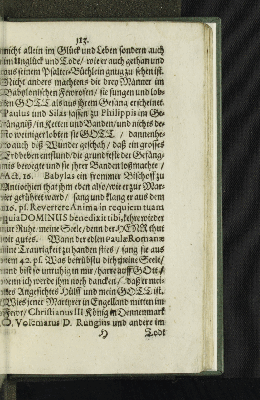 115.
nicht allein im Glück und Leben sondern auch
im Unglück und Tode / wie er auch gethan und
aus seinem Psalter-Büchlein gnug zu sehen ist.
Nicht anders machtens die drey Männer im
Babylonischen Feworofen / sie sungen und lob-
ten GOTT als aus ihrem Gesang erscheinet.
Paulus und Silas sassen zu Philippis im Ge-
fängniß / in Ketten und Banden / und nichts de-
sto weniger lobten sie GOTT / dannenhe-
ro auch diß Wunder geschah / daß ein grosses
Erdbeben entstund / die grundfeste der Gefäng-
nis bewegte und sie ihrer Banden loß machte /
Act. 16. Babylas ein frommer Bischoff zu
Antiochien that ihm eben also / wie er zur Mar-
ter geführet ward / sang und klang er aus dem
116. pf. Revertere Anima in requiem tuam
quia DOMINUS benedixit tibi, kehre wieder
zur Ruhe meine Seele / denn der HERR thut
dir gutes. Wann der edlen Paulæ Romanæ
eine Trawrigkeit zu handen stieß / sang sie aus
dem 42. pf. Was betrübstu dich meine Seele /
und bist so unruhig in mir / harre auff GOtt /
denn ich werde ihm noch dancken / daß er mei-
nes Angesichtes Hülff und mein GOTT ist.
Wies jener Martyrer in Engelland mitten im
Fewr / Christianus III König in Dennemarck
D. Volcmarus D. Rungius und andere im
H Todt